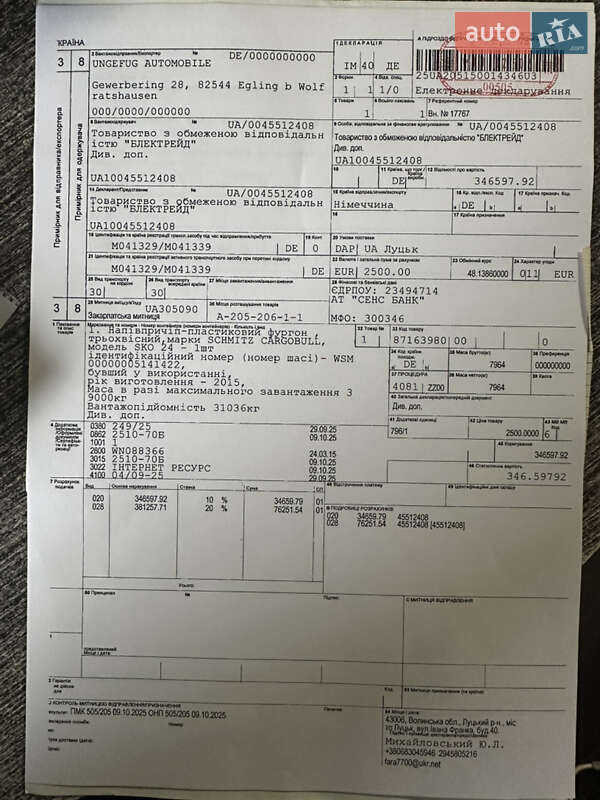 auto RIA.com
КРАЇНА
1 ДЕКЛАРАЦІЯ
ІМ 40 ДЕ
25UA205150014346U3
00505
Електронне декларування
3 8
2 Вантажовідправник/Експортер № DE/0000000000
UNGEFUG AUTOMOBILE
Gewerbering 28, 82544 Egling b Wolf
ratshausen
000/0000/000000
3 Форми
1 1
4 Відв. спец.
1/0
5 Товари
1
6 Всього паковань
1
7 Референтний номер
Вн. № 17767
Примірник для відправника/експортера
Примірник для одержувача
8 Вантажоодержувач № UA/0045512408
Товариство з обмеженою відповідальн
істю "БЛЕКТРЕЙД"
Див. доп.
UA10045512408
9 Особа, відповідальна за фінансове врегулювання № UA/0045512408
Товариство з обмеженою відповідальністю "БЛЕКТРЕЙД"
Див. доп.
UA10045512408
DE
12 Відомості про вартість
346597.92
14 Декларант/Представник № UA/0045512408
Товариство з обмеженою відповідальн
істю "БЛЕКТРЕЙД"
UA10045512408
15 Країна відправлення/експорту
Німеччина
DE
17 Країна призначення
M041329/M041339 DE
19 Конт.
0
20 Умови поставки
DAP UA Луцьк
21 Ідентифікація та країна реєстрації активного транспортного засобу при перетині кордону
M041329/M041339 DE
22 Валюта і загальна сума за рахунком
EUR 2500.00
23 Обмінний курс
48.13860000
24 Характер угоди
011 EUR
25 Вид транспорту на кордоні
30
26 Вид транспорту
30
27 Місце завантаження/розвантаження
28 Фінансові та банківські дані
ЄДРПОУ: 23494714
АТ "СЕНС БАНК"
МФО: 300346
3 8
29 Митниця виїзду/в'їзду UA305090
Закарпатська митниця
30 Місце розташування товарів
A-205-206-1-1
Маркування та номери - Номери контейнерів - Кількість і розпізнавальні
1. Напівпричіп-пластиковий фургон
трьохвісний,марки SCHMITZ CARGOBULL,
модель SKO 24 - 1шт
ідентифікаційний номер (номер шасі)- WSM
00000005141422,
бувший у використанні,
рік виготовлення - 2015,
Маса в разі максимального завантаження 3
9000кг
Вантажопідйомність 31036кг
Див. доп.
32 Товар №
1
33 Код товару
87163980 00 0
DE
35 Маса брутто(кг)
7964
36 Преференція
000000000
37 ПРОЦЕДУРА
4081 ZZ00
38 Маса нетто(кг)
7964
39 Квота
40 Загальна декларація/попередній документ
Див. доп.
41 Додаткові одиниці
796/1
42 Ціна товару
2500.0000
6
45 Коригування
346597.92
46 Статистична вартість
346.59792
0380 249/25 29.09.25
0862 2510-70Б 09.10.25
1001 1
2800 WN088366 24.03.15
3015 2510-70Б 09.10.25
3022 ІНТЕРНЕТ РЕСУРС
4100 04/09-25 29.09.25
Вид Основа нарахування Ставка Сума СП
020 346597.92 10 % 34659.79 01
028 381257.71 20 % 76251.54 01
Усього:
48 Відстрочення платежу
B ПОДРОБИЦІ РОЗРАХУНКІВ
020 34659.79 45512408
028 76251.54 45512408 [45512408]
50 Принципал №
Підпис:
C МИТНИЦЯ ВІДПРАВЛЕННЯ
представлений
Місце і дата:
Код
53 Митниця призначення (та країна)
J КОНТРОЛЬ МИТНИЦЕЮ ВІДПРАВЛЕННЯ/ПРИЗНАЧЕННЯ
ПМК 505/205 09.10.2025 ОНП 505/205 09.10.2025
54 Місце і дата:
43006, Волинська обл., Луцький р-н., міс
то Луцьк, вул.Івана Франка, буд.40.
Михайловський Ю.Л.
+380683045946 2945805216
fara7700@ukr.net